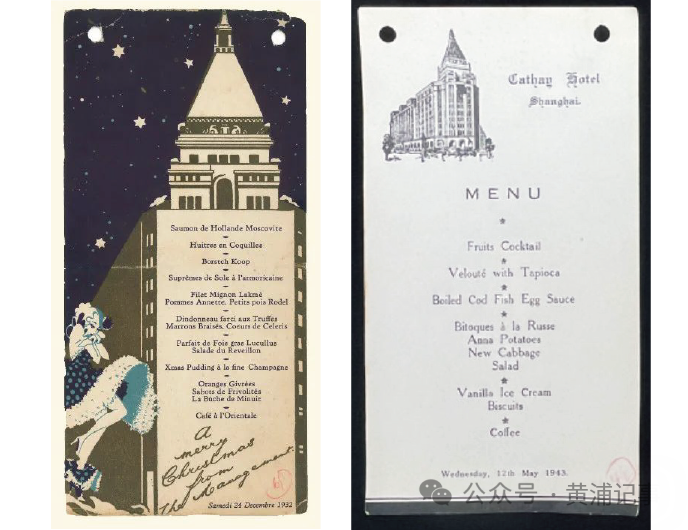 Saumon de Hollande Moscovite
Huitres en Coquilles
Borstch Koop
Suprêmes de Sole à l'armoricaine
Filet Mignon Lakmé
Pommes Annette. Petits pois Rodel
Dindonneau farci aux Truffes
Marrons Braisés. Coeurs de Celeris
Parfait de Fois gras Lucullus
Salade du Reveillon
Xmas Pudding à la fine Champagne
Oranges Givrées
Sabots de Frivolités
La Bûche de Minuit
Café à l'Orientale
A
merry
Christmas
from
The Management.
Samedi 24 Decembre 1932
Cathay Hotel
Shanghai.
MENU
Fruits Cocktail
Velouté with Tapioca
Boiled Cod Fish Egg Sauce
Bitoques à la Russe
Anna Potatoes
New Cabbage
Salad
Vanilla Ice Cream
Biscuits
Coffee
Wednesday, 12th May 1943.
公众号 · 黄浦记